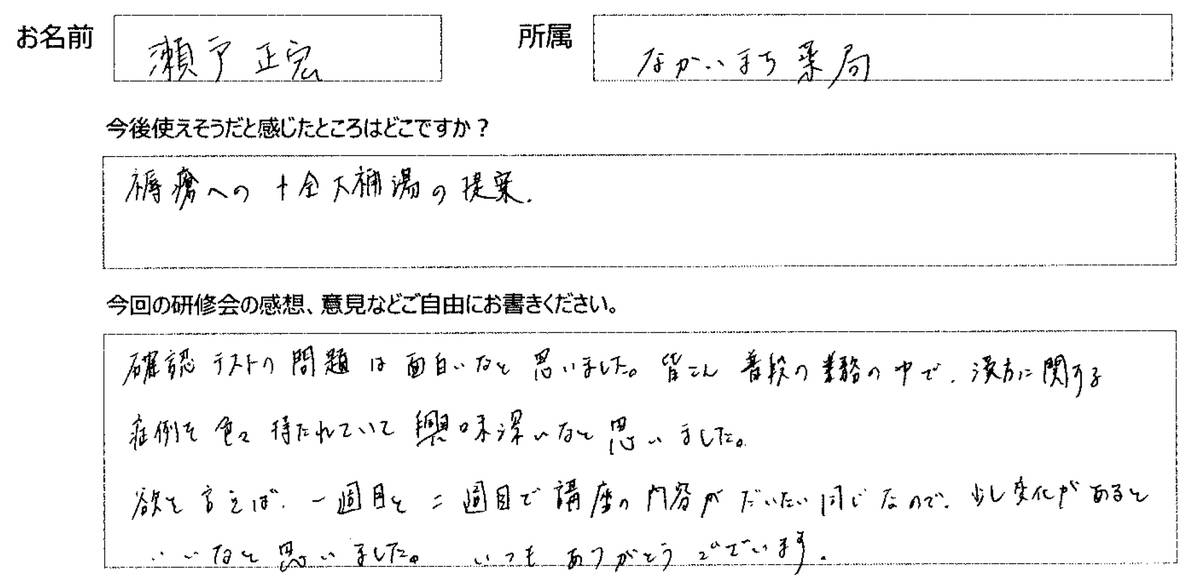 お名前 瀬戸正宏 所属 なかいまち薬局
今後使えそうだと感じたところはどこですか？
褥瘡への十全大補湯の提案.
今回の研修会の感想、意見などご自由にお書きください。
確認テストの問題は面白いなと思いました。皆さん普段の業務の中で、漢方に関する
症例を色々持たれていて興味深いなと思いました。
欲を言えば、一週目と二週目で講座の内容がだいたい同じなので、少し変化があると
いいなと思いました。いつもありがとうございます。